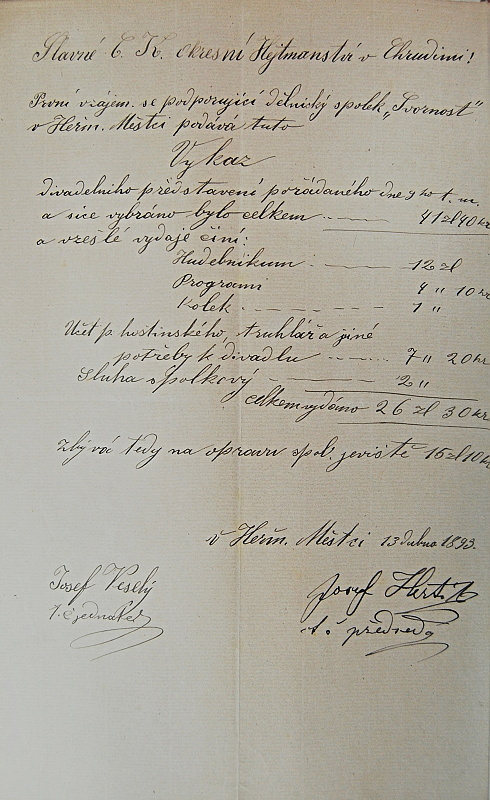 Slavné C. K. okresní Hejtmanství v Chrudimi!
První vzájem. se podporující dělnický spolek „Svornost"
v Heřm. Městci podává tuto
Vykaz
divadelního představení pořádaného dne 9ho t. m.
a sice vybráno bylo celkem ..——.. 41 zl 40 kr
a vzeslé vydaje činí:
Hudebnikum —..— 12 zl
Programi 4 " 10 kr
Kolek .——— 1 "
Učet p. hostinského, truhlář a jiné
potřeby k divadlu ——.. 7 " 20 kr
Sluha spolkový ——— 2 "
celkem vydáno 26 zl 30 kr
Zbývá tedy na opravu spol. jeviště 15 zl 10 kr
v Heřm. Městci 13 dubna 1893.
Josef Veselý
t. č. jednatel
Josef
t. č. předseda